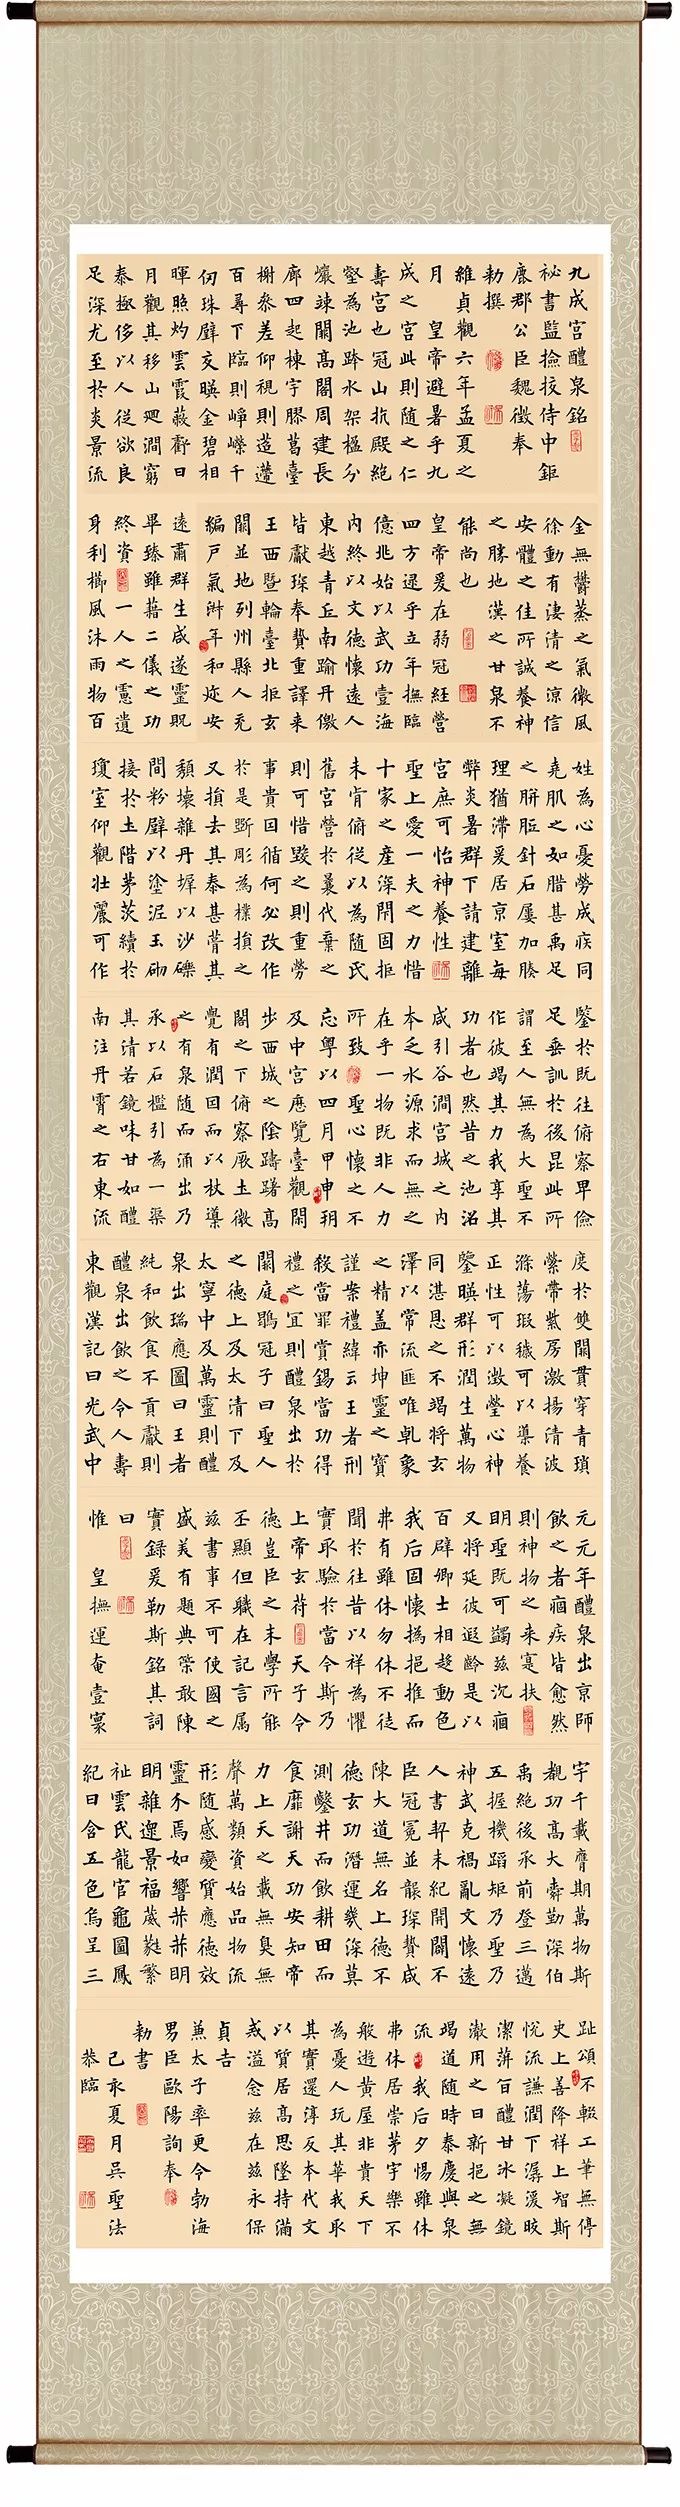 九成宮醴泉銘
祕書監撿挍侍中鉅
鹿郡公臣魏徵奉
勅撰
維貞觀六年孟夏之
月 皇帝避暑乎九
成之宮此則随之仁
壽宮也冠山抗殿絶
壑為池跨水架楹分
巖竦闕高閣周建長
廊四起棟宇膠葛臺
榭參差仰視則迢遰
百尋下臨則崢嶸千
仞珠壁交暎金碧相
暉照灼雲霞蔽虧日
月觀其移山迴澗窮
泰極侈以人從欲良
足深尤至於炎景流
金無鬱蒸之氣微風
徐動有淒清之涼信
安體之佳所誠養神
之勝地漢之甘泉不
能尚也
皇帝爰在弱冠經營
四方逮乎立年撫臨
億兆始以武功壹海
內終以文德懷遠人
東越青丘南踰丹徼
皆獻琛奉贄重譯來
王西暨輪臺北拒玄
闕並地列州縣人充
編戶氣淑年和迩安
遠肅群生咸遂靈貺
畢臻雖藉二儀之功
終資 一人之慮遺
身利櫛風沐雨物百
姓為心憂勞成疾同
堯肌之如腊甚禹足
之胼胝針石屢加腠
理猶滯爰居京室每
弊炎暑群下請建離
宮庶可怡神養性
聖上愛一夫之力惜
十家之產深閇固拒
未肯俯從以為随氏
舊宮營於曩代棄之
則可惜毀之則重勞
事貴因循何必改作
於是斲彫為樸損之
又損去其泰甚葺其
頹壞雜丹墀以沙礫
間粉壁以塗泥玉砌
接於土階茅茨續於
瓊室仰觀壯麗可作
鑒於既往俯察卑儉
足垂訓於後昆此所
謂至人無為大聖不
作彼竭其力我享其
功者也然昔之池沼
咸引谷澗宮城之內
本乏水源求而無之
在乎一物既非人力
所致 聖心懷之不
忘粵以四月甲申朔
及中宮歷覽臺觀閑
步西城之陰躊躇高
閣之下俯察厥土微
覺有潤因而以杖導
之有泉随而涌出乃
承以石檻引為一渠
其清若鏡味甘如醴
南注丹霄之右東流
度於雙闕貫穿青瑣
縈帶紫房激揚清波
滌蕩瑕穢可以導養
正性可以澂瑩心神
鑒暎群形潤生萬物
同湛恩之不竭將玄
澤以常流匪唯乹象
之精盖亦坤靈之寶
謹案禮緯云王者刑
殺當罪賞錫當功得
禮之宜則醴泉出於
闕庭鶡冠子曰聖人
之德上及太清下及
太寧中及萬靈則醴
泉出瑞應圖曰王者
純和飲食不貢獻則
醴泉出飲之令人壽
東觀漢記曰光武中
元元年醴泉出京師
飲之者痼疾皆愈然
則神物之來寔扶
明聖既可蠲兹沉痼
又將延彼遐齡是以
百辟卿士相趍動色
我后固懷撝挹推而
弗有雖休勿休不徒
聞於往昔以祥為懼
實取驗於當今斯乃
上帝玄符 天子令
德豈臣之末學所能
丕顯但職在記言属
兹書事不可使國之
盛美有遺典策敢陳
實錄爰勒斯銘其詞
曰
惟 皇撫運奄壹寰
宇千載膺期萬物斯
覩功高大舜勤深伯
禹絶後承前登三邁
五握機蹈矩乃聖乃
神武克禍亂文懷遠
人書契未紀開闢不
臣冠冕並襲琛贄咸
陳大道無名上德不
德玄功潛運幾深莫
測鑿井而飲耕田而
食靡謝天功安知帝
力上天之載無臭無
聲萬類資始品物流
形随感變質應德效
靈介焉如響赫赫明
明雜遝景福葳蕤繁
祉雲氏龍官龜圖鳳
紀日含五色烏呈三
趾頌不輟工筆無停
史上善降祥上智斯
悅流謙潤下潺湲皎
潔蓱旨醴甘冰凝鏡
澈用之日新挹之無
竭道随時泰慶與泉
流 我后夕惕雖休
弗休居崇茅宇樂不
般遊黃屋非貴天下
為憂人玩其華我取
其實還淳反本代文
以質居高思墜持滿
戒溢念兹在兹永保
貞吉
兼太子率更令勃海
男臣歐陽詢奉
勅書
己亥夏月吳聖法
恭臨